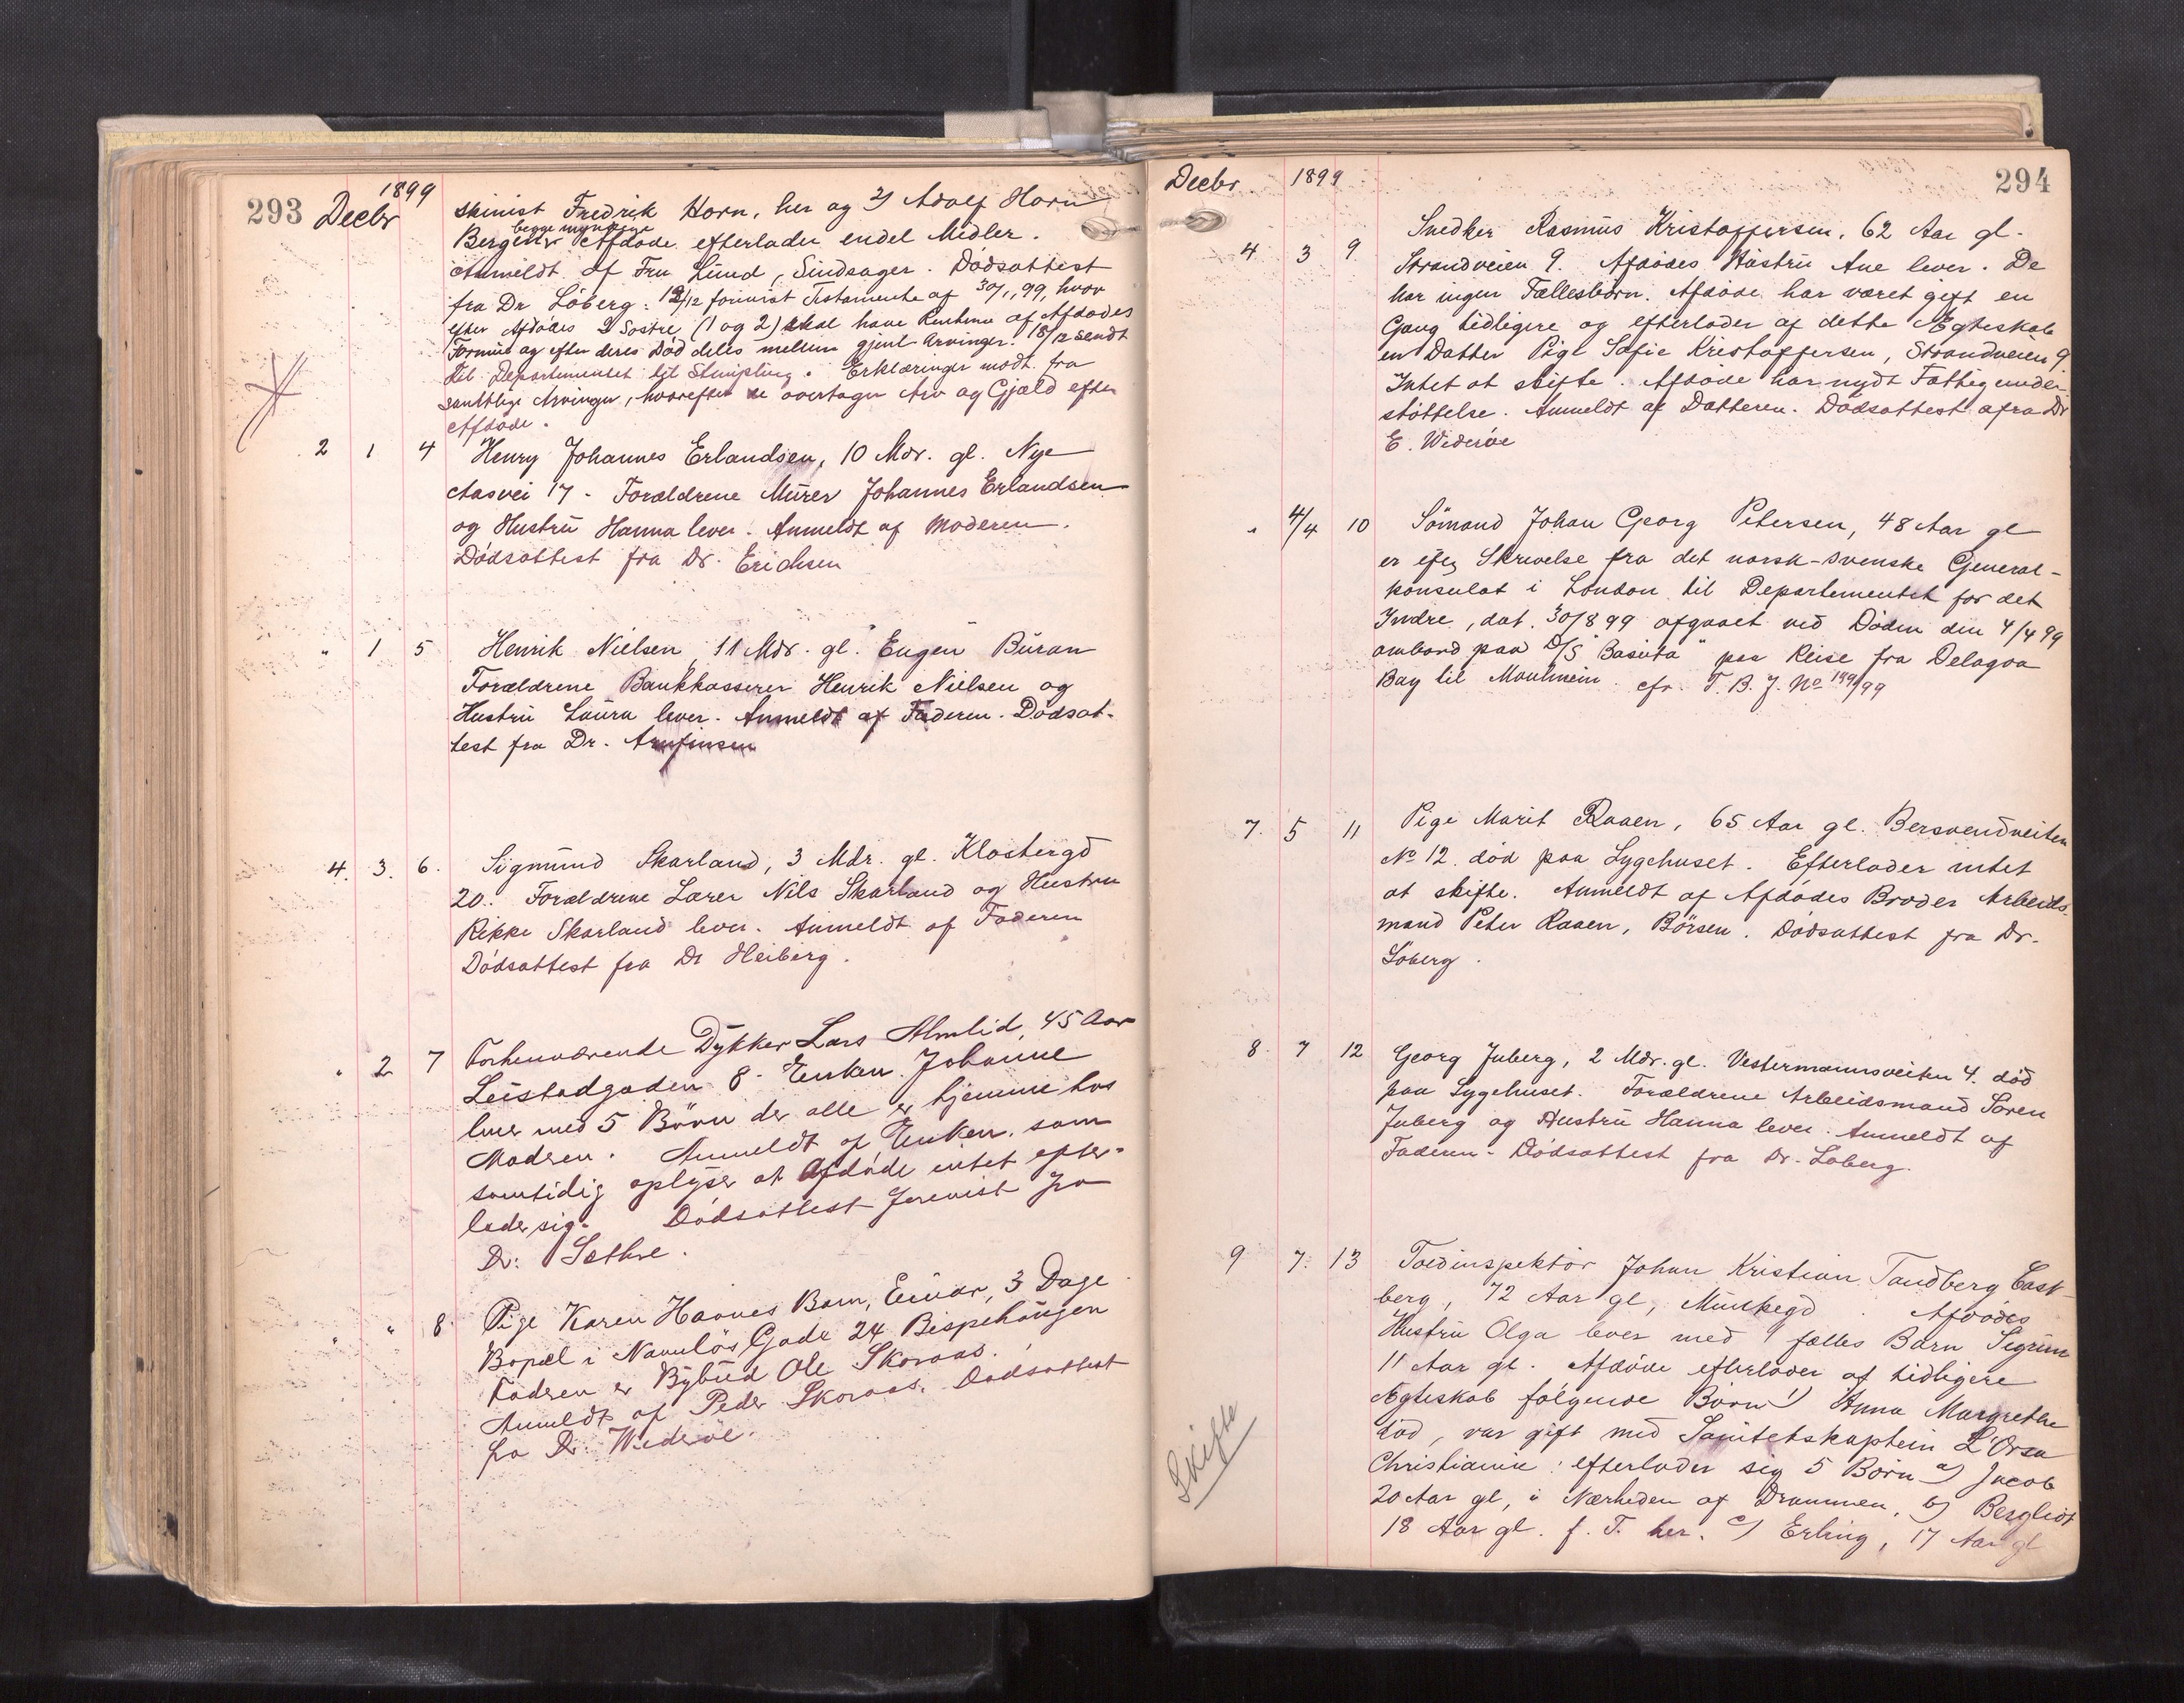 293 Decbr 1899
skinist Fredrik Horn, her og 2) Adolf Horn
begge myndige
Bergen. Afdøde efterlader endel Midler.
Anmeldt af Fru Lund, Sindsager. Dödsattest
fra Dr Löberg. 12/12 forevist Testamente af 30/1,99, hvor
efter Afdödes 2 Søstre (1 og 2) skal have Renterne af Afdödes
Formue og efter deres Död deles mellem gjenl. Arvinger. 18/12 sendt
til Departementet til Stempling. Erklæringer modt. fra
samtlige Arvinger, hvorefter de overtager Arv og Gjæld efter
Afdöde.
2 1 4 Henry Johannes Erlandsen, 10 Mdr. gl. Nye
Aasvei 17. Forældrene Murer Johannes Erlandsen
og Hustru Hanna lever. Anmeldt af Moderen.
Dödsattest fra Dr. Erichsen
" 1 5 Henrik Nielsen, 11 Mdr. gl. Eugen
Forældrene Bankkasserer Henrik Nielsen og
Hustru Laura lever. Anmeldt af Faderen. Dödsat-
test fra Dr. Arnfinsen
4. 3. 6. Sigmund Skarland, 3 Mdr. gl. Klostergd
20. Forældrene Lærer Nils Skarland og Hustru
Rikke Skarland lever. Anmeldt af Faderen
Dödsattest fra Dr Heiberg.
" 2 7 Forhenværende Dykker Lars Almlid, 45 Aar
Leistadgaden 8. Enken Johanne
lever med 5 Börn der alle er hjemme hos
Modren. Anmeldt af Enken, som
samtidig oplyser at Afdöde intet efter-
lader sig. Dödsattest forevist fra
Dr. Sæthre.
" " 8 Pige Karen Haanes Barn, Einar, 3 Dage
Bopæl i Navnlös Gade 24 Bispehaugen
Fadren er Bybud Ole Skoraas.
Anmeldt af Peder Skoraas. Dödsattest
fra Dr. Wideröe.
Decbr 1899 294
4 3 9 Snedker Rasmus Kristoffersen, 62 Aar gl.
Strandveien 9. Afdödes Hustru Ane lever. De
har ingen Fællesbörn. Afdöde har været gift en
Gang tidligere og efterlader af dette Ægteskab
en Datter Pige Sofie Kristoffersen, Strandveien 9
Intet at skifte. Afdöde har nydt Fattigunder-
støttelse. Anmeldt af Datteren. Dödsattest fra Dr
E. Wideröe
" 4/4 10 Sömand Johan Georg Petersen, 48 Aar gl
er Skrivelse fra det norsk-svenske General-
konsulat i London til Departementet for det
Indre, dat. 30/8 99 afgaaet ved Döden den 4/4 99
ombord paa D/S "Basuta" paa Reise fra Delagoa
Bay til Moulmein. cfr. T. B. J. No 199/99
7. 5 11 Pige Marit Raaen, 65 Aar gl. Bersvendveiten
No 12. död paa Sygehuset. Efterlader intet
at skifte. Anmeldt af Afdödes Broder Arbeids-
mand Peter Raaen, Börsen. Dödsattest fra Dr.
Löberg.
8. 7 12 Georg Juberg, 2 Mdr. gl. Vestermannsveiten 4. död
paa Sygehuset. Forældrene Arbeidsmand Sören
Juberg og Hustru Hanna lever. Anmeldt af
Faderen. Dödsattest fra Dr. Löberg.
9 7. 13 Toldinspektör Johan Kristian Tandberg Cast-
berg, 72 Aar gl, Munkegd . Afdödes
Hustru Olga lever med 1 fælles Barn Sigrun
11 Aar gl. Afdöde efterlader af tidligere
Ægteskab følgende Börn 1) Anna Margrethe
död, var gift med Sanitetskaptein L'Orsa
Christiania: efterlader sig 5 Börn a) Jacob
20 Aar gl, i Nærheden af Drammen, b) Bergliot
18 Aar gl. f. T. her. c) Erling, 17 Aar gl
Skifte